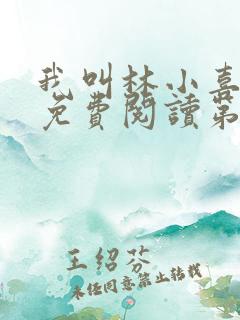 我叫林小喜
免費閱讀第
王紹芬
未經同意禁止轉載